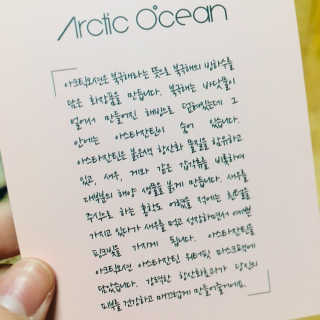 Arctic Ocean
아크틱오션은 북극해라는 뜻으로 북극해의 빙하수를
담은 화장품을 만듭니다. 북극해는 바닷물이
얼어서 만들어진 해빙으로 덮여있는데 그
안에는 아스타잔틴이 숨어 있습니다.
아스타잔틴은 붉은색 항산화 물질을 함유하고
있고, 새우, 게와 같은 갑각류를 비롯하여
대부분의 해양 생물을 붉게 만듭니다. 새우를
주식으로 하는 홍학도 어렸을 적에는 흰털을
가지고 있다가 새우를 먹고 성장하면서 예쁜
핑크빛을 가지게 됩니다. 아스타잔틴을
아크틱오션 아스타잔틴 워터풀 마스크팩에
담았습니다. 강력한 항산화효과가 당신의
피부를 건강하고 매끄럽게 만들어줄거에요.